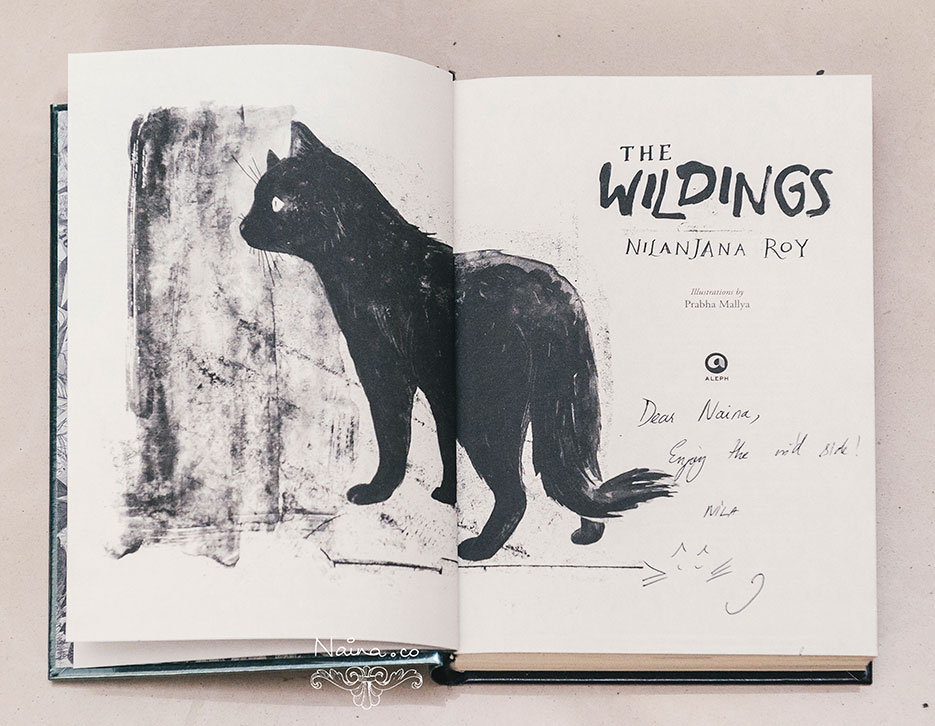 THE
WILDINGS
NILANJANA ROY
Illustrations by
Prabha Mallya
ALEPH
Dear Naina,
Enjoy the wild side!
NILA
Naina.co